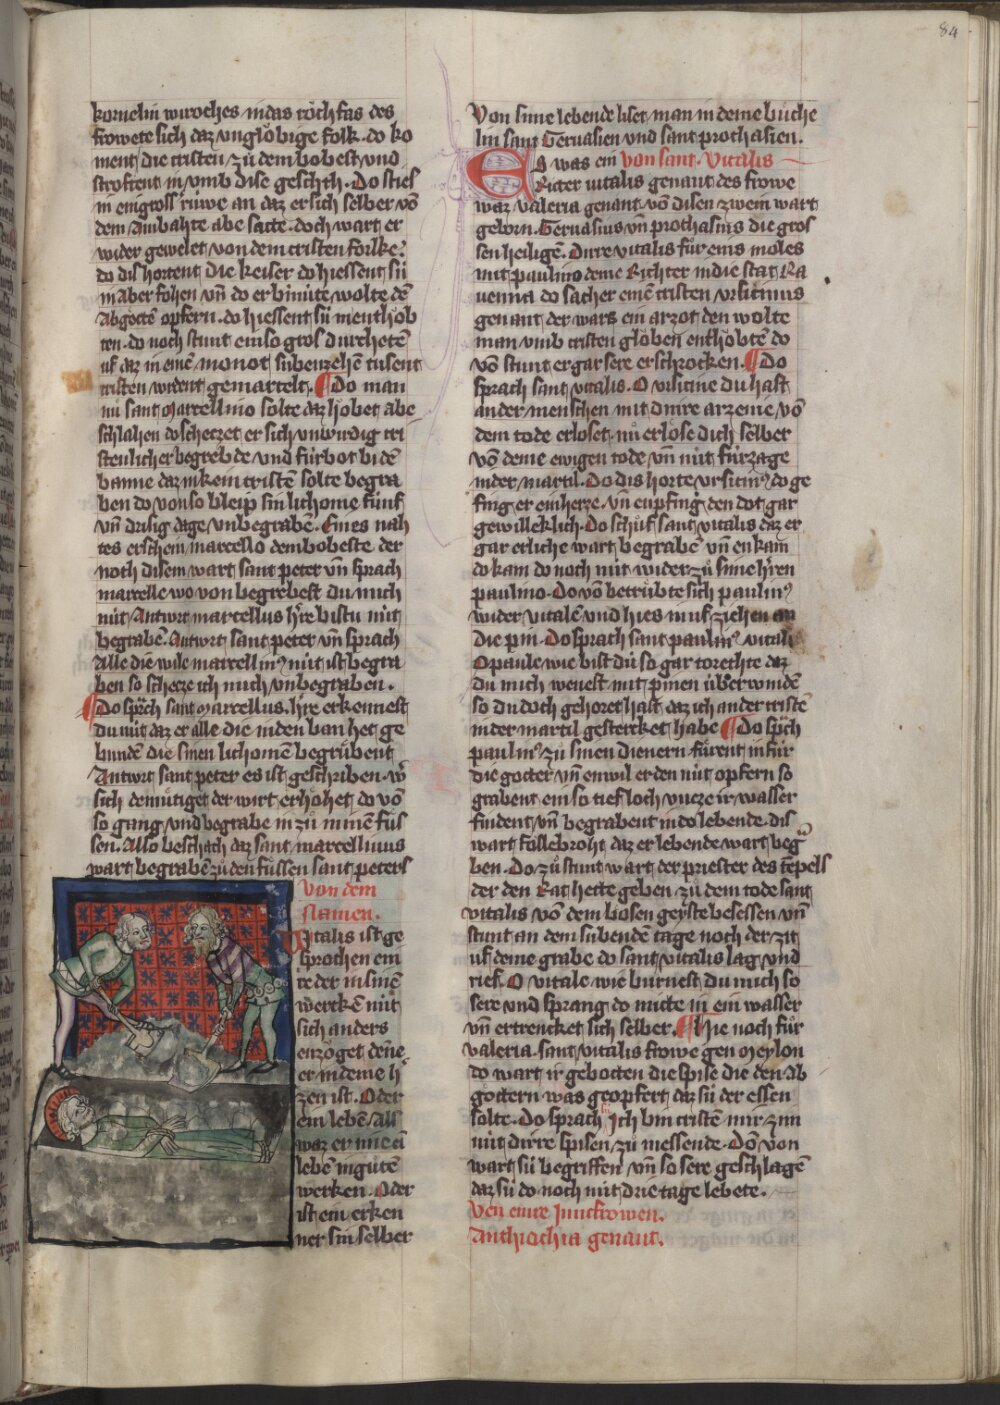 84
kornelin wiroches in das röch fas des
frowete sich daz vnglöbige folk. do ko
ment die cristen zů dem bobest vnd
stroftent in vmb dise geschiht. Do sties
in ein gross rüwe an daz er sich selber vō
dem Ambahte abe satte. doch wart er
wider gewelet von dem cristen folke.
do dis hortent die keiser do hiessent sü
in aber fohen vn̄ do er binüte wolte dē
Abgöttē opfern. do hiessent sü in enthöb
ten. do noch stunt ein so gros durehetē
uf daz in einē monot sübenzehen tusent
cristen wurdent gemartelt. Do man
nů sant Marcellino solte daz höbet abe
schlahen do schetzet er sich vnwirdig cri
stenlicher begrebde vnd fürbot bi dē
banne daz in kein cristē solte begra
ben do von so bleip sin lichome fünf
vn̄ drisig dage vnbegrabē. Eines nah
tes erschein marcello dem bobeste der
noch disem wart sant peter vn̄ sprach
marcelle wo von begrebest du mich
nüt Antwrt marcellus h're bistu nüt
begrabē. Antwrt sant peter vn̄ sprach
Alle die wile marcellin9 nüt ist begra
ben so schetze ich mich vnbegraben.
Do sprach sant Marcellus. h're erkennest
du nüt daz er alle die in den ban het ge
bundē die sinen lichomē begrůbent
Antwrt sant peter es ist geschriben. w'
sich demütiget der wirt erhöhet do vō
so gang vnd begrabe in zů minē füs
sen. Also beschach daz sant marcellinus
wart begrabē zů den füssen sant peters
von dem
namen.
Vitalis ist ge
sprochen ein
re der in sinē
werkē nüt
sich anders
enzöget dēne
er in deme h'
zen ist. Oder
ein lebē Als
waz er mie ei
lebē in gůtē
werken. Oder
ist ein erken
ner sin selber
Von sime lebende liset man in deme bůche
lin sant Geruasien vnd sant prothasien.
von sant. Vitalis
Es was ein
Ritter uitalis genant des frowe
waz valeria genant vō disen zwein wart
geborn. Geruasius vn̄ prothasius die gros
sen heiligē. Dirre vitalis für eins moles
mit paulino deme Richter in die stat Ra
uenna do sach er einē cristen vrsicinus
genant der wars ein arzot den wolte
man vmb cristen glöben enthöbtē do
vō stunt er gar sere erschrocken. Do
sprach sant vitalis. O vrsicine du hast
ander menschen mit dinre arzenie vō
dem tode erlöset. nů erlöse dich selber
vō deme ewigen tode vn̄ nüt fürzage
in der martil. Do dis horte vrsicin9 do ge
fing er ein herze vn̄ enpfing den dot gar
gewilleklich. Do schůf sant vitalis daz er
gar erliche wart begrabē vn̄ en kam
do kam do noch nüt wider zů sime h'ren
paulino. Do vō betrübte sich paulin9
wider vitalē vnd hies in uf ziehen an
die pin. Do sprach sant paulin9 vitali
O paule wie bist dů so gar torehte daz
du mich wenest mit pinen überwindē
so du doch gehoret hast daz ich ander cristē
in der martil gestercket habe Do sprach
paulin9 zů sinen dienern fürent in für
die götter vn̄ enwil er den nüt opfern so
grabent ein so tief loch vncze ir wasser
findent vn̄ begrabent in do lebende. dis
wart follebroht daz er lebende wart begra
ben. Do zů stunt wart der priester des tēpels
der den Rat hette geben zů dem tode sant
vitalis vō dem bösen geyste besessen vn̄
stunt an dem sübendē tage noch der zit
uf deme grabe do sant vitalis lag vnd
rief. O vitale wie burnest du mich so
sere vnd sprang do mitte in ein wasser
vn̄ ertrencket sich selber. Hie noch für
valeria. sant vitalis frowe gen Meylon
do wart ir gebotten die spise die den Ab
göttern was geopfert daz sü der essen
solte. Do sprach sü Ich bin cristē mir zim
nüt dirre spisen zů niessende. Do von
wart sü begriffen vn̄ so sere geschlagē
daz sü do noch nüt drie tage lebete.
Von einre Junckfrowen.
Anthiochia genant.